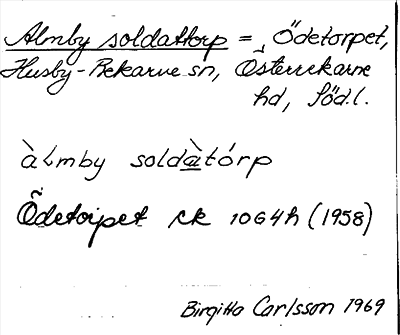 Almby soldattorp = Ödetorpet,
Husby-Rekarne sn, Österrekarne
hd, Söd.l.
àlmby soldàtórp
Ödetorpet rk 10G4h (1958)
Birgitta Carlsson 1969